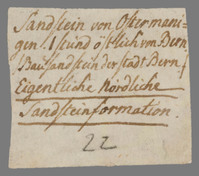 Sandstein von Ostermani-
gen. 1 stund östlich von Bern
Bausandstein der stadt Bern.
Eigentliche Nördliche
Sandsteinformation.
22